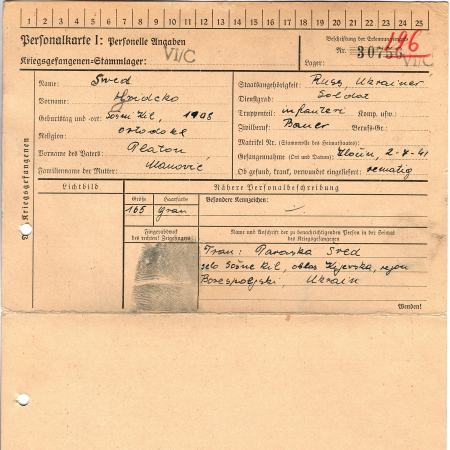 1 2 3 4 5 6 7 8 9 10 11 12 13 14 15 16 17 18 19 20 21 22 23 24 25
Personalkarte I: Personelle Angaben
Kriegsgefangenen-Stammlager: VI/C
Beschriftung der Erkennungsmarke
Nr. 30756 126
Lager: VI/C
Des Kriegsgefangenen
Name: Swed
Vorname:
Geburtstag und -ort: 1908
Religion: ortodoks
Vorname des Vaters: Platon
Familienname der Mutter: Ulanović
Staatsangehörigkeit: Russ, Ukrainer
Dienstgrad: Soldat
Truppenteil: infanteri Komp. usw.:
Zivilberuf: Bauer Berufs-Gr.:
Matrikel Nr. (Stammrolle des Heimatstaates):
Gefangennahme (Ort und Datum): 2-7-41
Ob gesund, krank, verwundet eingeliefert:
Lichtbild
Nähere Personalbeschreibung
Größe Haarfarbe Besondere Kennzeichen:
165 grau
Fingerabdruck
des rechten! Zeigefingers
Name und Anschrift der zu benachrichtigenden Person in der Heimat
des Kriegsgefangenen
Frau: Paraska Sved
selo kil, oblas Kijevska, rejon
Borespoljski, Ukrain
Wenden!